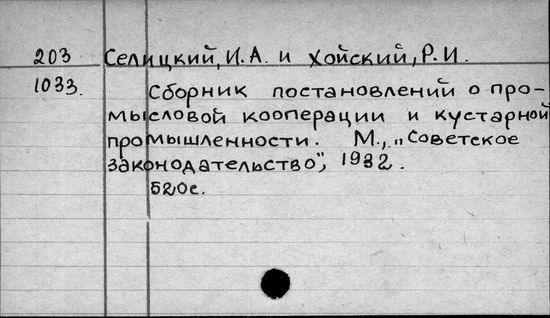 203 Селицкий, И.А. и Хойский, Р.И.
1033. Сборник постановлений о про-
мысловой кооперации и кустарной
промышленности. М., „Советское
законодательство", 1932.
520с.